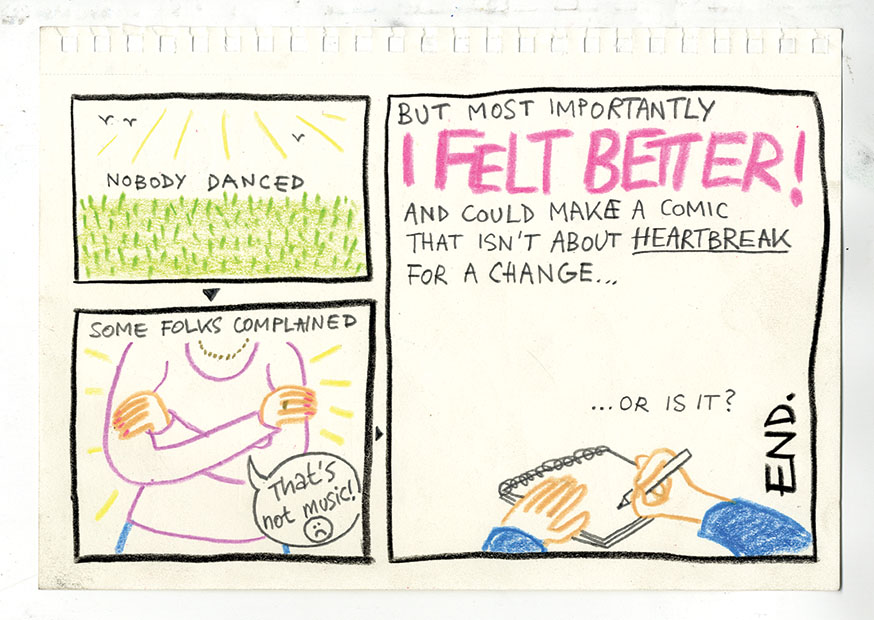 NOBODY DANCED
SOME FOLKS COMPLAINED
That's
not music!
BUT MOST IMPORTANTLY
I FELT BETTER!
AND COULD MAKE A COMIC
THAT ISN'T ABOUT HEARTBREAK
FOR A CHANGE...
...OR IS IT?
END.